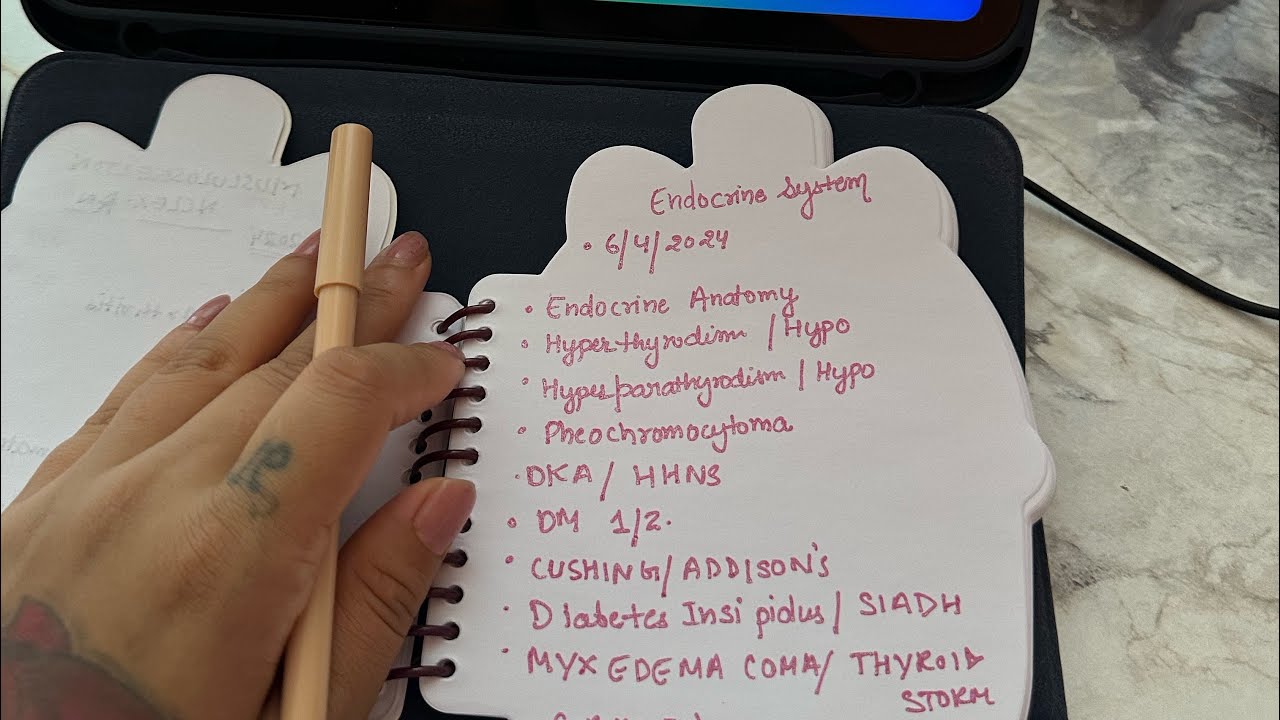 Endocrine System
• 6/4/2024
• Endocrine Anatomy
• Hyperthyrodism / Hypo
• Hyperparathyrodism / Hypo
• Pheochromocytoma
• DKA / HHNS
• DM 1/2.
• CUSHING / ADDISON'S
• Diabetes Insipidus / SIADH
• MYXEDEMA COMA / THYROID
STORM